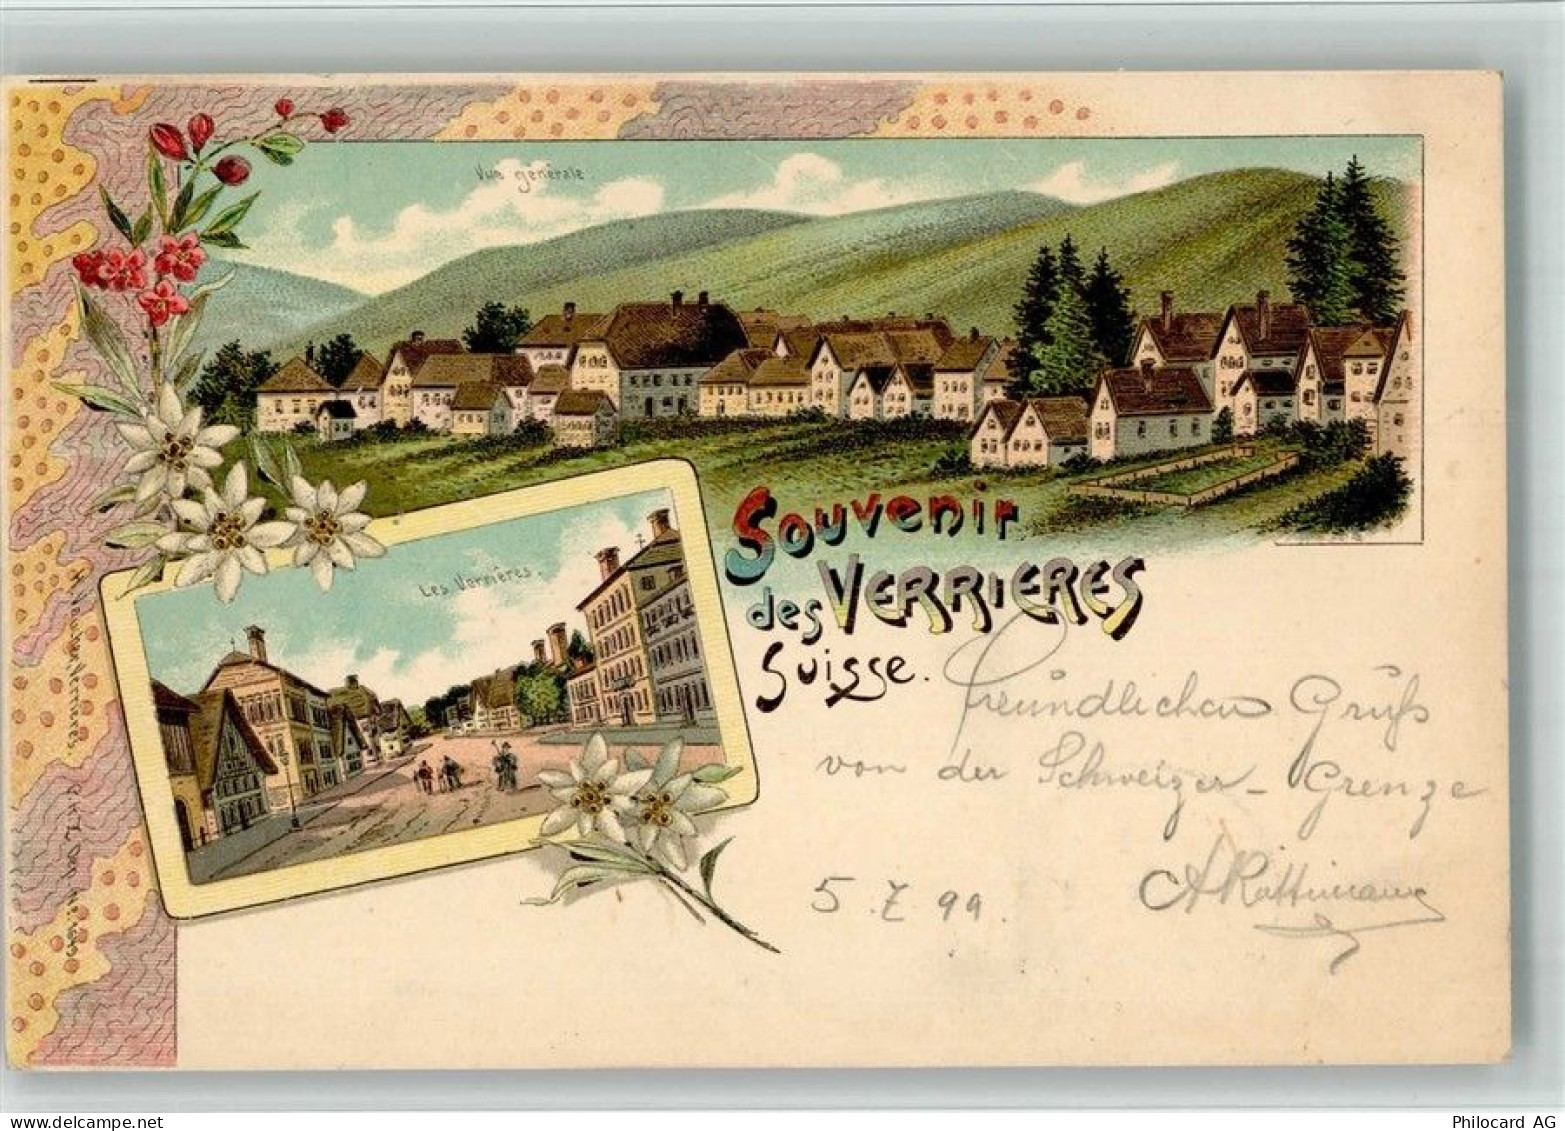 Vue générale.
Les Verrières.
Souvenir
des VERRIERES
Suisse.
Freundlichen Gruß
von der Schweizer-Grenze
5.7.99.
Philocard AG